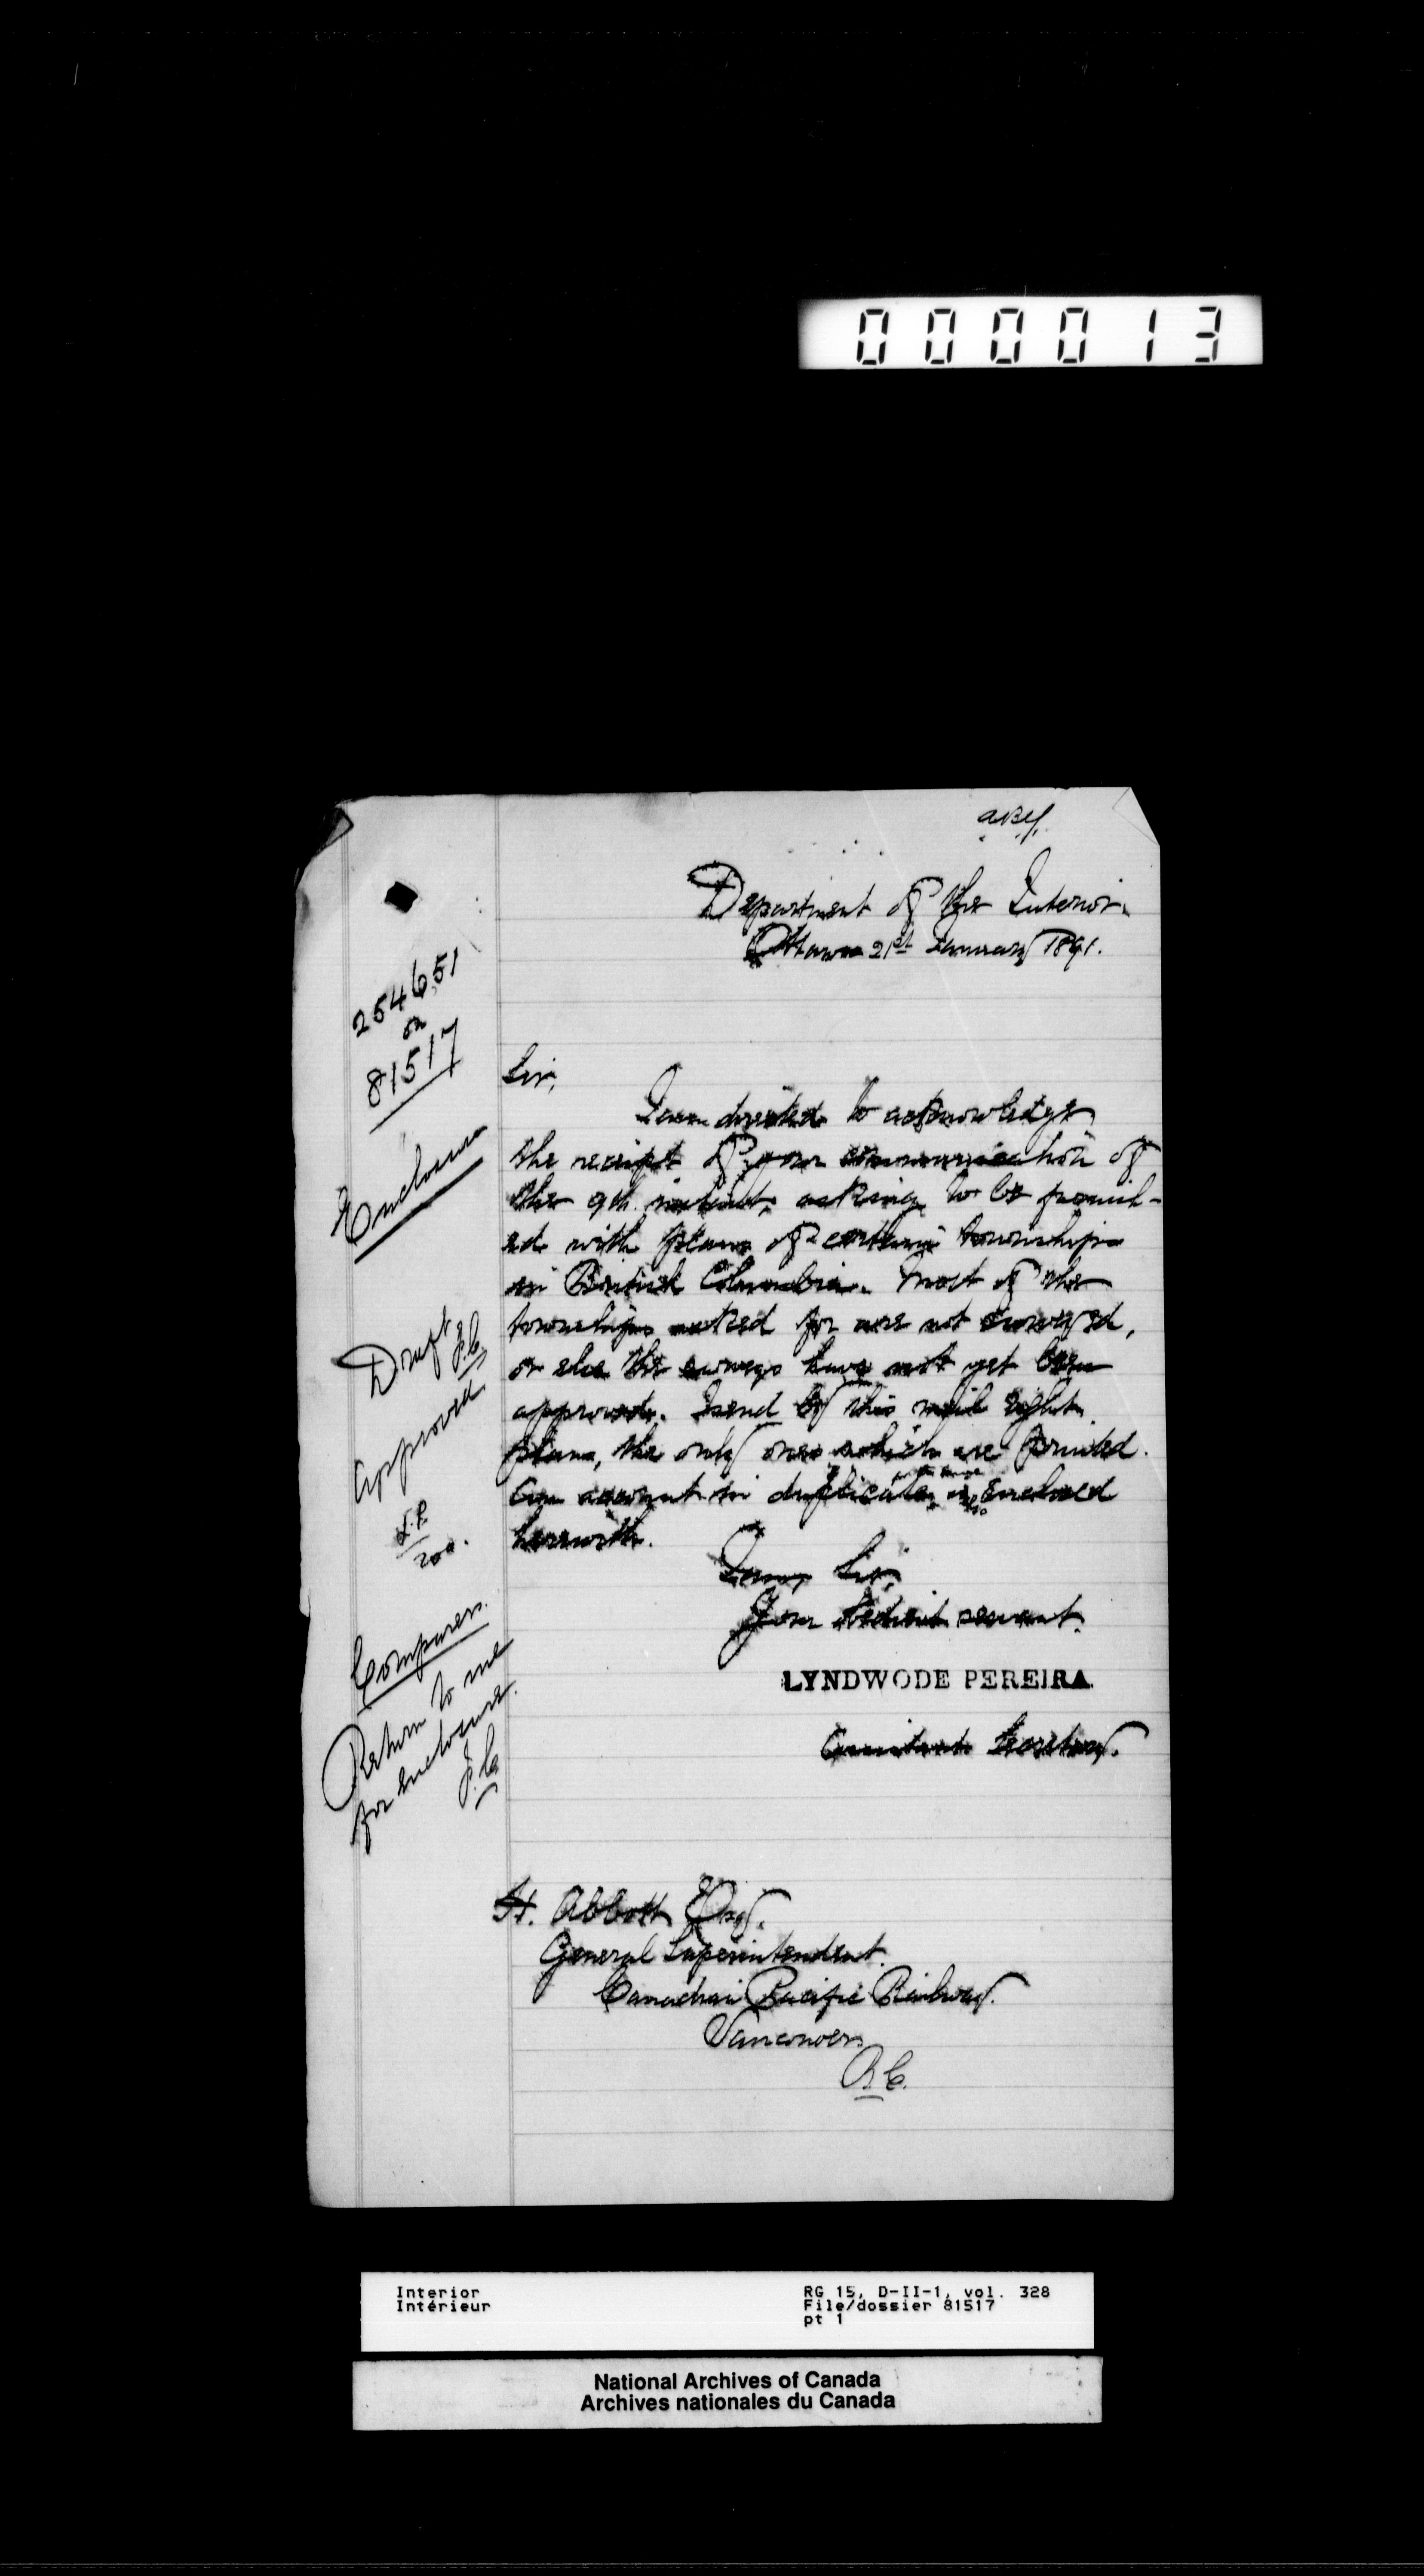 000013
Department of the Interior.
Ottawa 21st January 1891.
254651
on
81517
Enclosure
Draft
approved
Comparer.
Return to me
for enclosure.
Sir,
I am directed to acknowledge
the receipt of your communication of
the 9th instant, asking to be furnish-
ed with plans of certain townships
in British Columbia. Most of the
townships asked for are not surveyed,
or else the surveys have not yet been
approved. I send by this mail eight
plans, the only ones which are printed.
An account in duplicate for the same is enclosed
herewith.
I am, Sir,
Your obedient servant.
LYNDWODE PEREIRA
Assistant Secretary.
H. Abbott Esq.
General Superintendent.
Canadian Pacific Railway.
Vancouver.
B.C.
Interior
Intérieur
RG 15, D-II-1, vol. 328
File/dossier 81517
pt 1
National Archives of Canada
Archives nationales du Canada